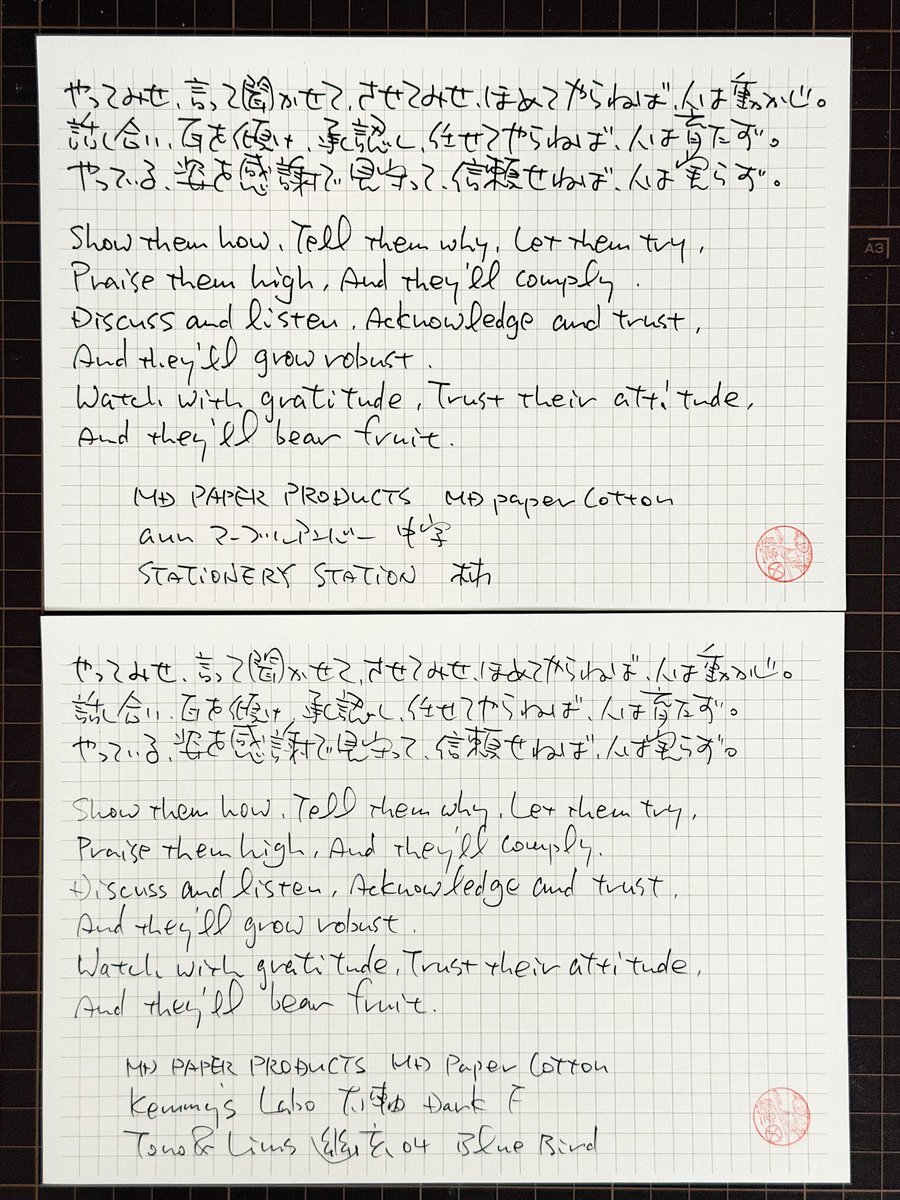 やってみせ、言って聞かせて、させてみせ、ほめてやらねば、人は動かじ。
話し合い、耳を傾け、承認し、任せてやらねば、人は育たず。
やっている、姿を感謝で見守って、信頼せねば、人は実らず。
Show them how, Tell them why, Let them try,
Praise them high, And they'll comply.
Discuss and listen, Acknowledge and trust,
And they'll grow robust.
Watch with gratitude, Trust their attitude,
And they'll bear fruit.
MD PAPER PRODUCTS MD paper Cotton
aun マーブルアンバー 中字
STATIONERY STATION
A3
やってみせ、言って聞かせて、させてみせ、ほめてやらねば、人は動かじ。
話し合い、耳を傾け、承認し、任せてやらねば、人は育たず。
やっている、姿を感謝で見守って、信頼せねば、人は実らず。
Show them how, Tell them why, Let them try,
Praise them high, And they'll comply.
Discuss and listen, Acknowledge and trust,
And they'll grow robust.
Watch with gratitude, Trust their attitude,
And they'll bear fruit.
MD PAPER PRODUCTS MD Paper Cotton
Kemmy's Labo Dark F
Tono & Lims 04 Blue Bird